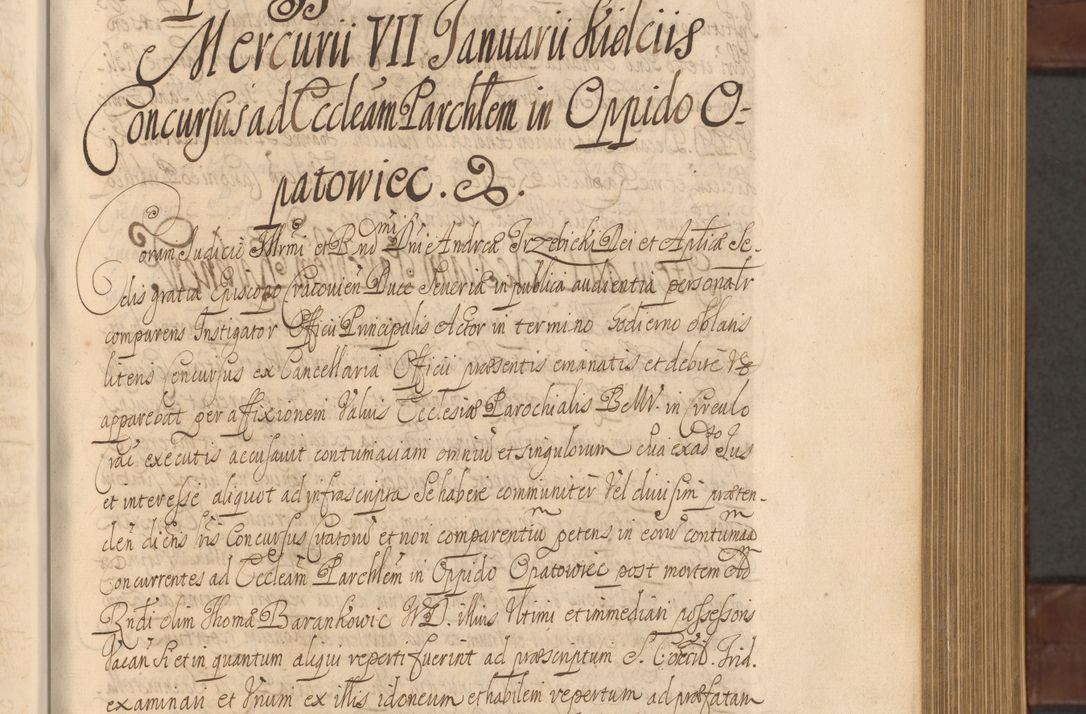 Mercurii VII Januarii Kielciis
Concursus ad Eccleam Parchlem in Oppido O-
patowiec.
Coram Judicio Illrmi et Rnd mi Dni Andreæ Trzebicki Dei et Aplicæ Se-
dis gratia Episcopo Cracovien Duce Severiæ in publica audientia personalr
comparens Instigator Officii Principalis Actor in termino hodierno oblatis
literis Concursus ex Cancellaria Officii præsentis emanatis et debite ut
apparebat per affixionem Valvis Ecclesiæ Parochialis B. M. V. in Circulo
Crac executis accusavit contumaciam omniu et singulorum sua exadto Jus
et interesse aliquot ad infrascripta se habere communiter vel divisim præten-
den dictis lris Concursus Citatoru et non comparentiu petens in eoru contumam
Concurrentes ad Eccleam Parchlem in Oppido Opatowiec post mortem
Rndi olim Thomæ Barankowic illius Ultimi et immediati possessoris
Vacan Si et in quantum aliqui reperti fuerint ad præscriptum S. Trid.
examinari et Unum ex illis idoneum et habilem repertum ad præfatam